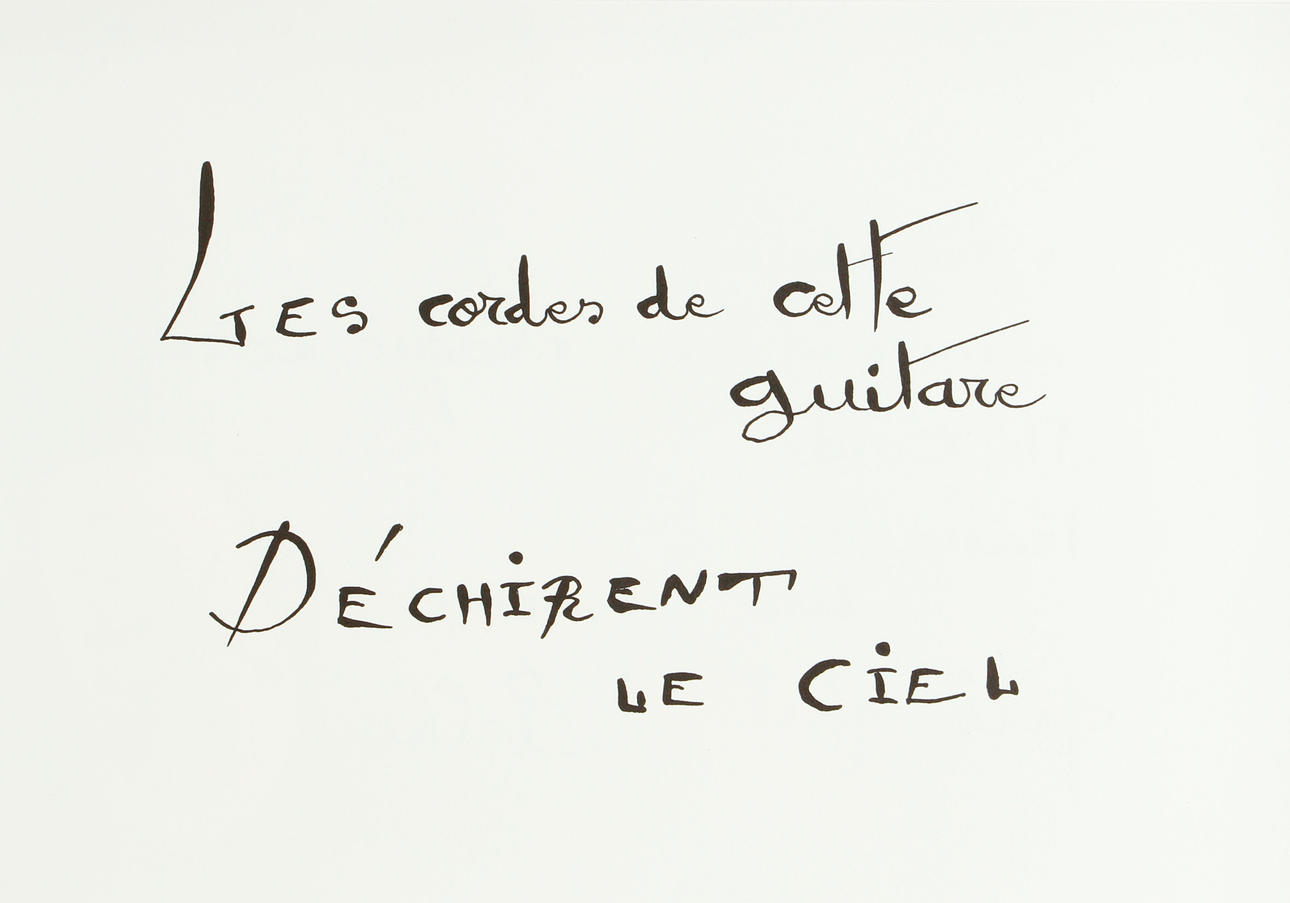 Les cordes de cette
guitare
DÉCHiRENT
LE CiEL